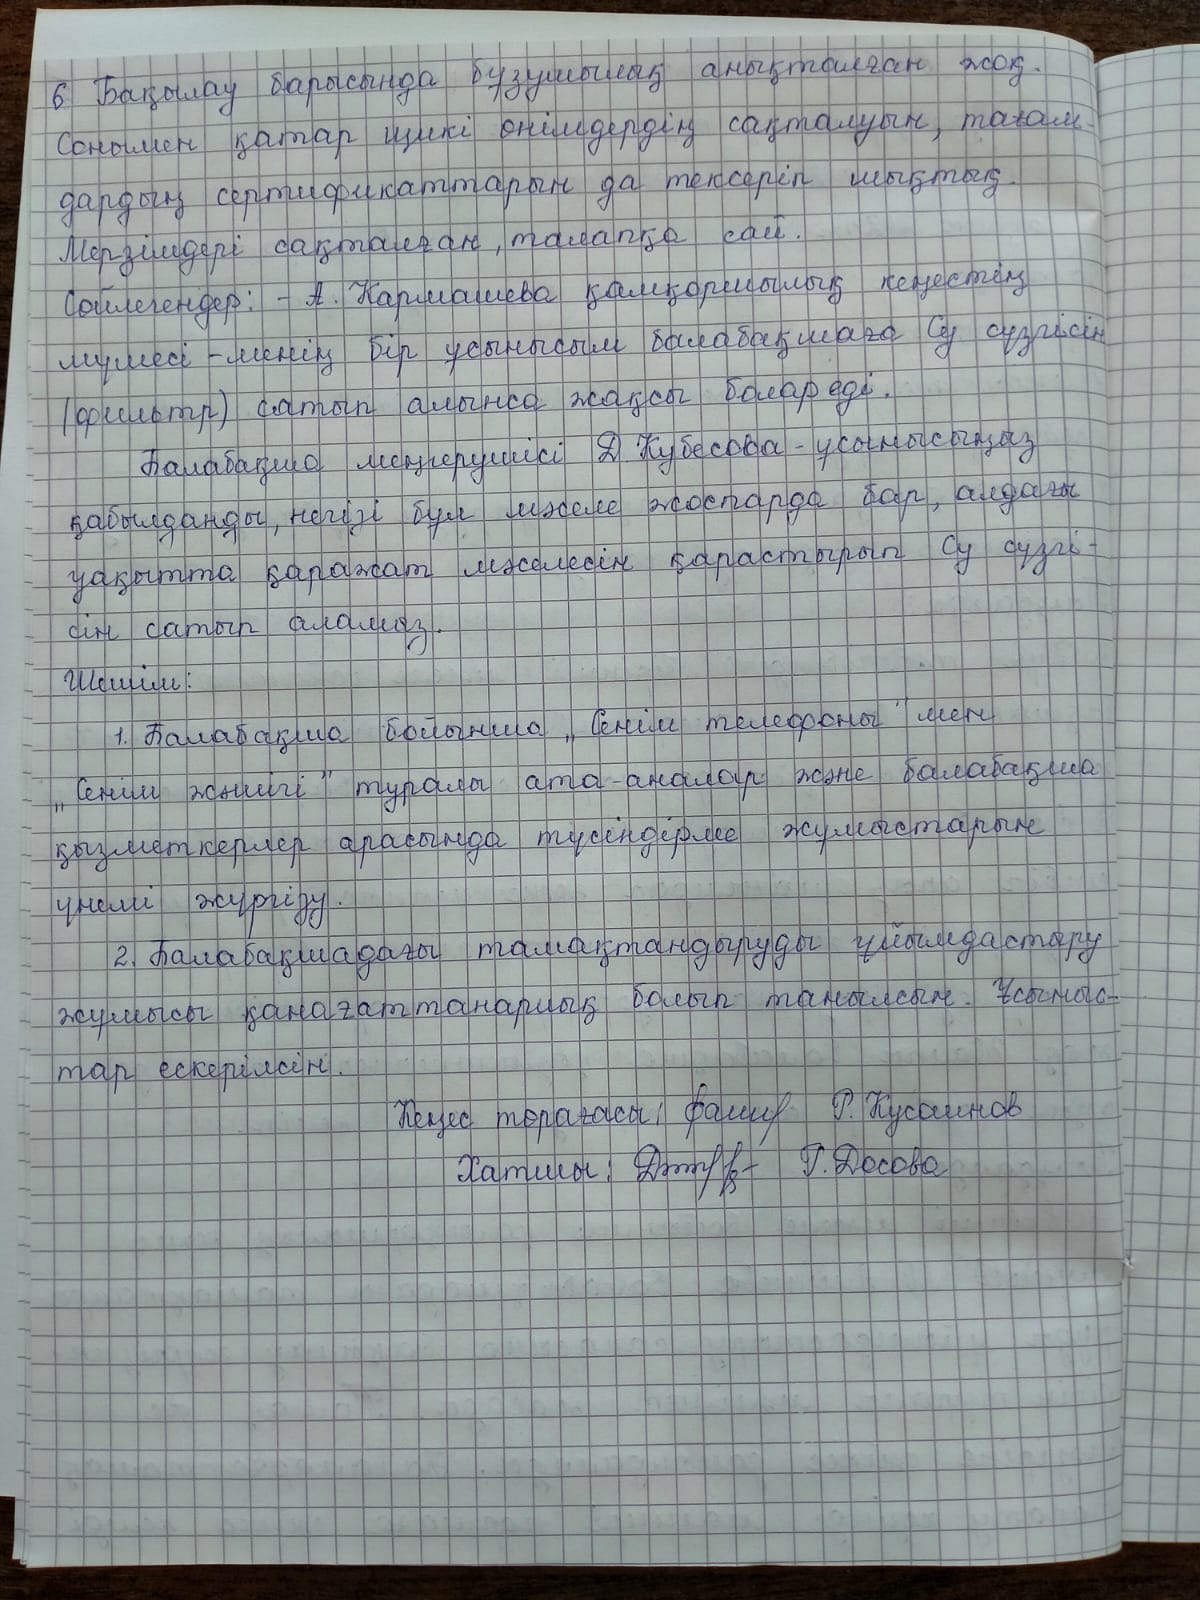 6 Бақылау барысында бұзушылық анықталған жоқ.
Сонымен қатар шикі өнімдердің сақталуын, тағам-
дардың сертификаттарын да тексеріп шықтық.
Мерзімдері сақталған, талапқа сай.
Сөйлегендер: - А. Кармашева қамқоршылық кеңестің
мүшесі - менің бір ұсынысым балабақшаға Су сүзгісін
(фильтр) сатып алынса жақсы болар еді.
Балабақша меңгерушісі Д Кубесова - ұсынысыңыз
қабылданды, негізі бұл мәселе жоспарда бар, алдағы
уақытта қаражат мәселесін қарастырып Су сүзгі-
сін сатып аламыз.
Шешім:
1. Балабақша бойынша „Сенім телефоны" мен
„Сенім жәшігі" туралы ата-аналар және балабақша
қызметкерлер арасында түсіндірме жұмыстарын
үнемі жүргізу.
2. Балабақшадағы тамақтандыруды ұйымдастыру
жұмысы қанағаттанарлық болып танылсын. Ұсыныс-
тар ескерілсін.
Кеңес төрағасы: Р. Кусаинов
Хатшы: Г. Досова